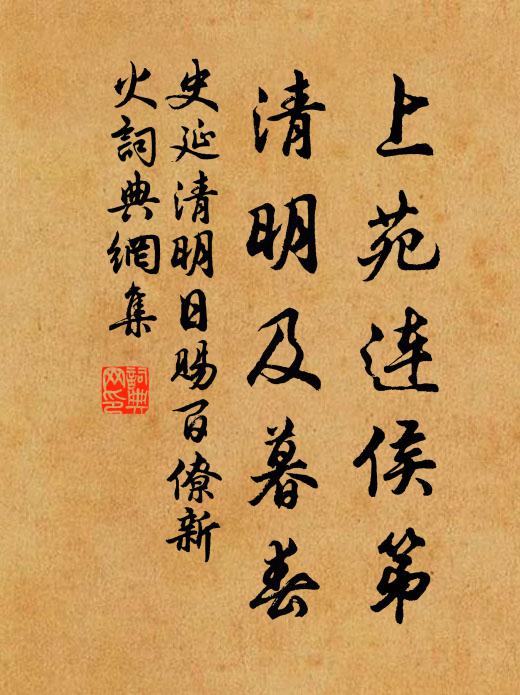 上苑连侯第
清明及暮春
史延清明日賜百僚新
火詞典網集
詞典
网印